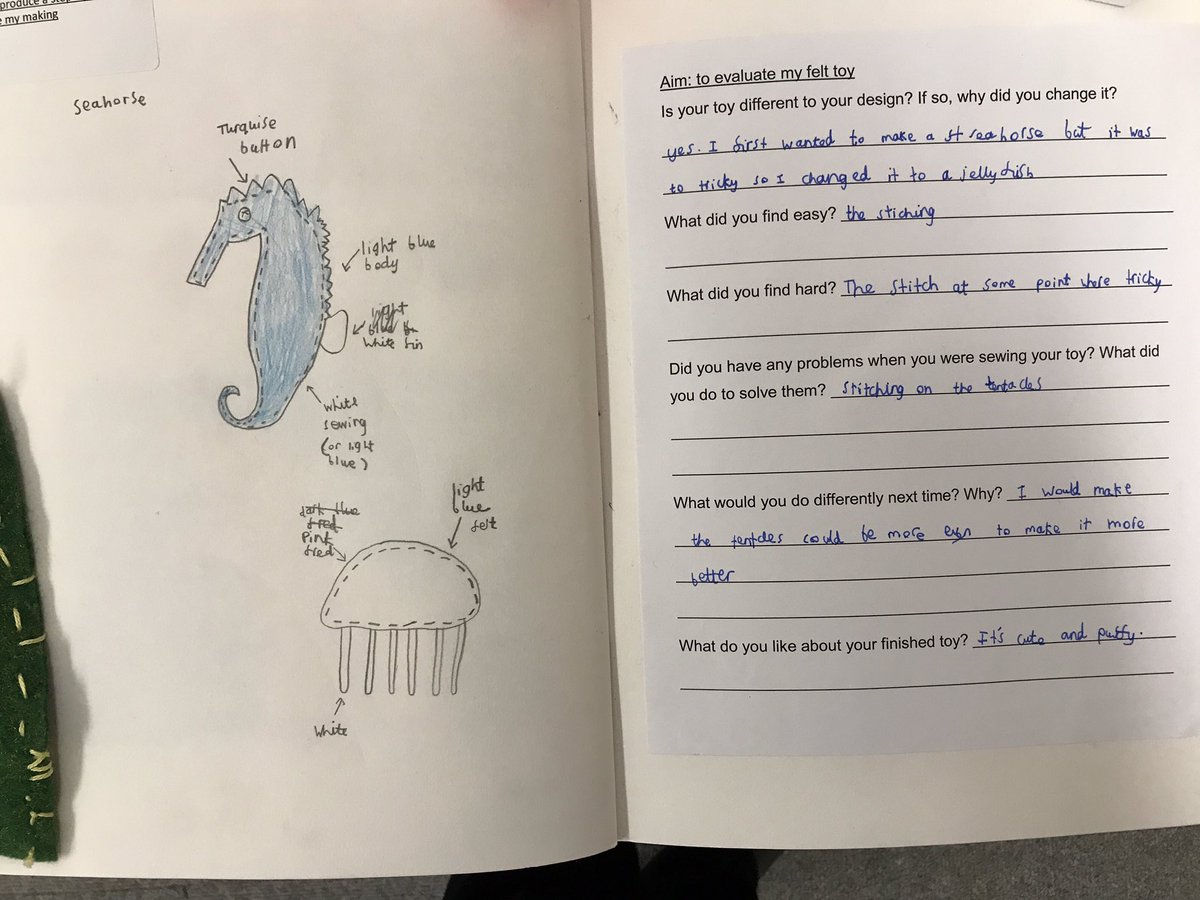 produce a ste
e my making
Seahorse
Turquise
button
light blue
body
light
blue
white fin
white
sewing
(or light
blue)
light
blue
felt
dark blue
fred
Pink
fred
White
Aim: to evaluate my felt toy
Is your toy different to your design? If so, why did you change it?
yes. I first wanted to make a st seahorse but it was
to tricky so I changed it to a jellyfish
What did you find easy? the stiching
What did you find hard? The stitch at some point where tricky
Did you have any problems when you were sewing your toy? What did
you do to solve them? Stitching on the tentacles
What would you do differently next time? Why? I would make
the tentcles could be more even to make it more
better
What do you like about your finished toy? It's cute and puffy.